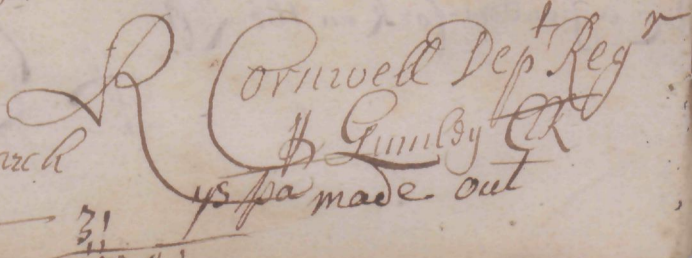 R Cornwell Dept Regr
Gumldy Clk
ys pa made out
31